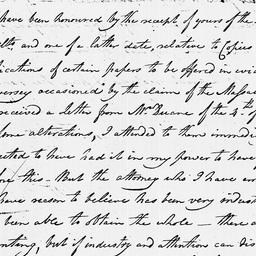 have been honoured by the receipt of yours of the
and one of a latter date, relative to Copies
ications of certain papers to be offered in evid
versy occasioned by the claim of the Massac
received a letter from Mr. Duane of the 4.th of
some alterations, I attended to them immedi
cted to have had it in my power to have
fore this - But the Attorney who I have em
have reason to believe has been very indust
been able to obtain the whole - there a
wanting, but if industry and attention can dis